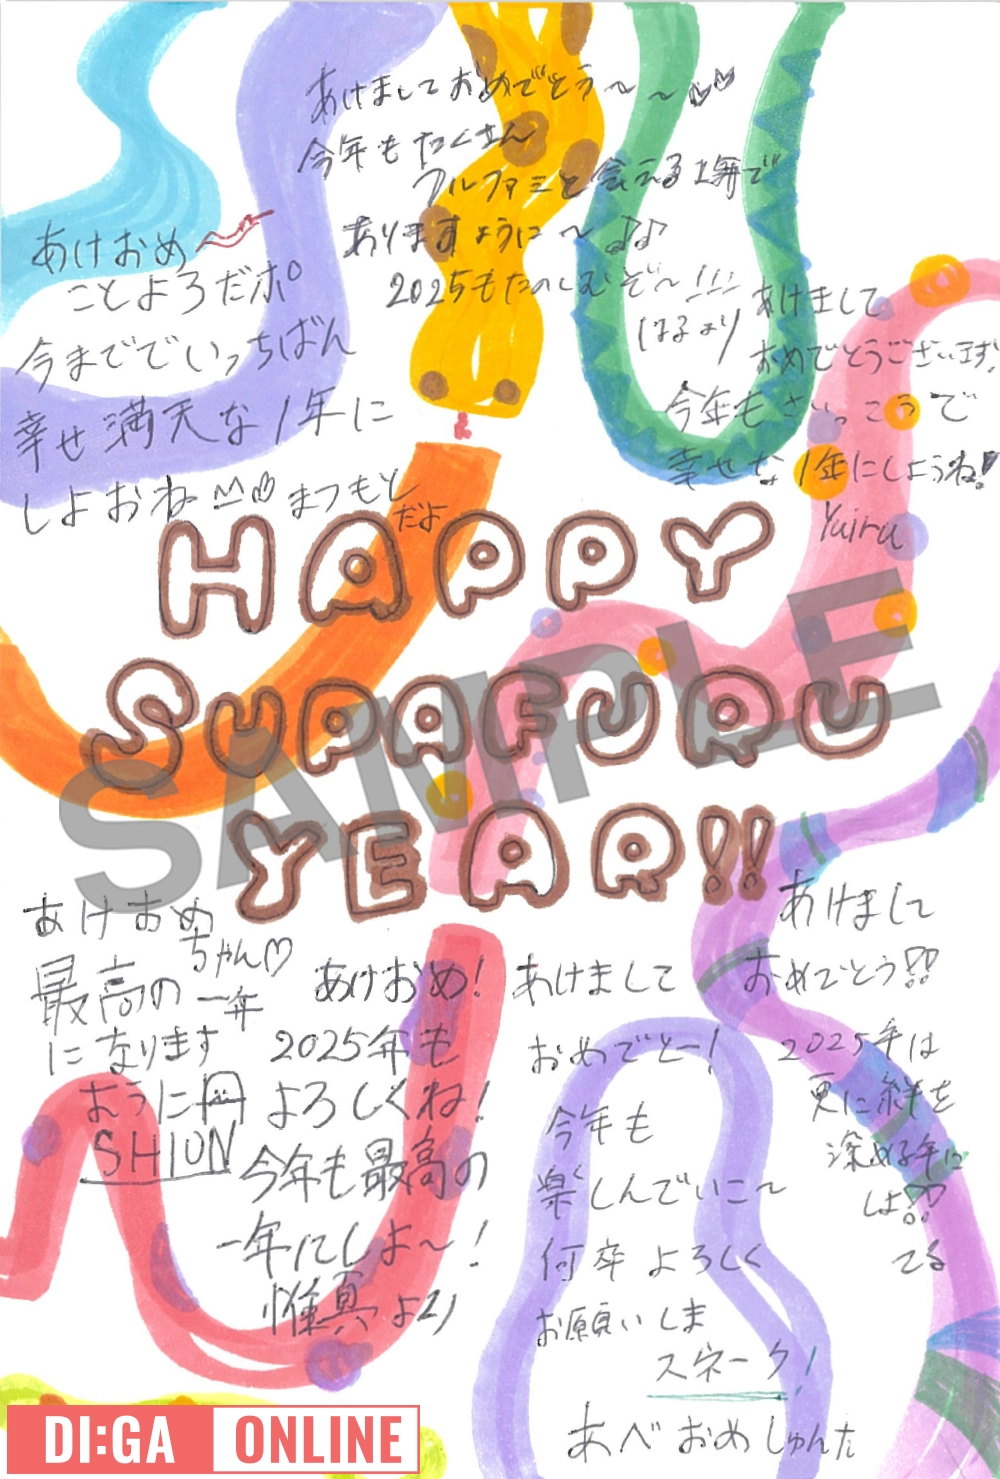 あけましておめでとう〜〜
今年もたくさん
アルファミと会える1年で
ありますように〜♪♪
2025もたのしむぞ〜!!!
はるより
あけおめ
ことよろだポ
今まででいっちばん
幸せ満天な1年に
しよおね
まつもと
だよ
あけまして
おめでとうございます!
今年もさいっこうで
幸せな1年にしようね!
Yuiru
HAPPY
SUPAFURU
YEAR!!
SAMPLE
あけおめ
ちゃん♡
最高の一年
になります
ように
SHION
あけおめ!
2025年も
よろしくね!
今年も最高の
一年にしよ〜!
惟真より
あけまして
おめでとー!
今年も
楽しんでいこ〜
何卒よろしく
お願いしま
スネーク!
あべおめしゅんた
あけまして
おめでとう!!
2025年は
更に絆を
深める年に
しよ!!
てる
DI:GA ONLINE